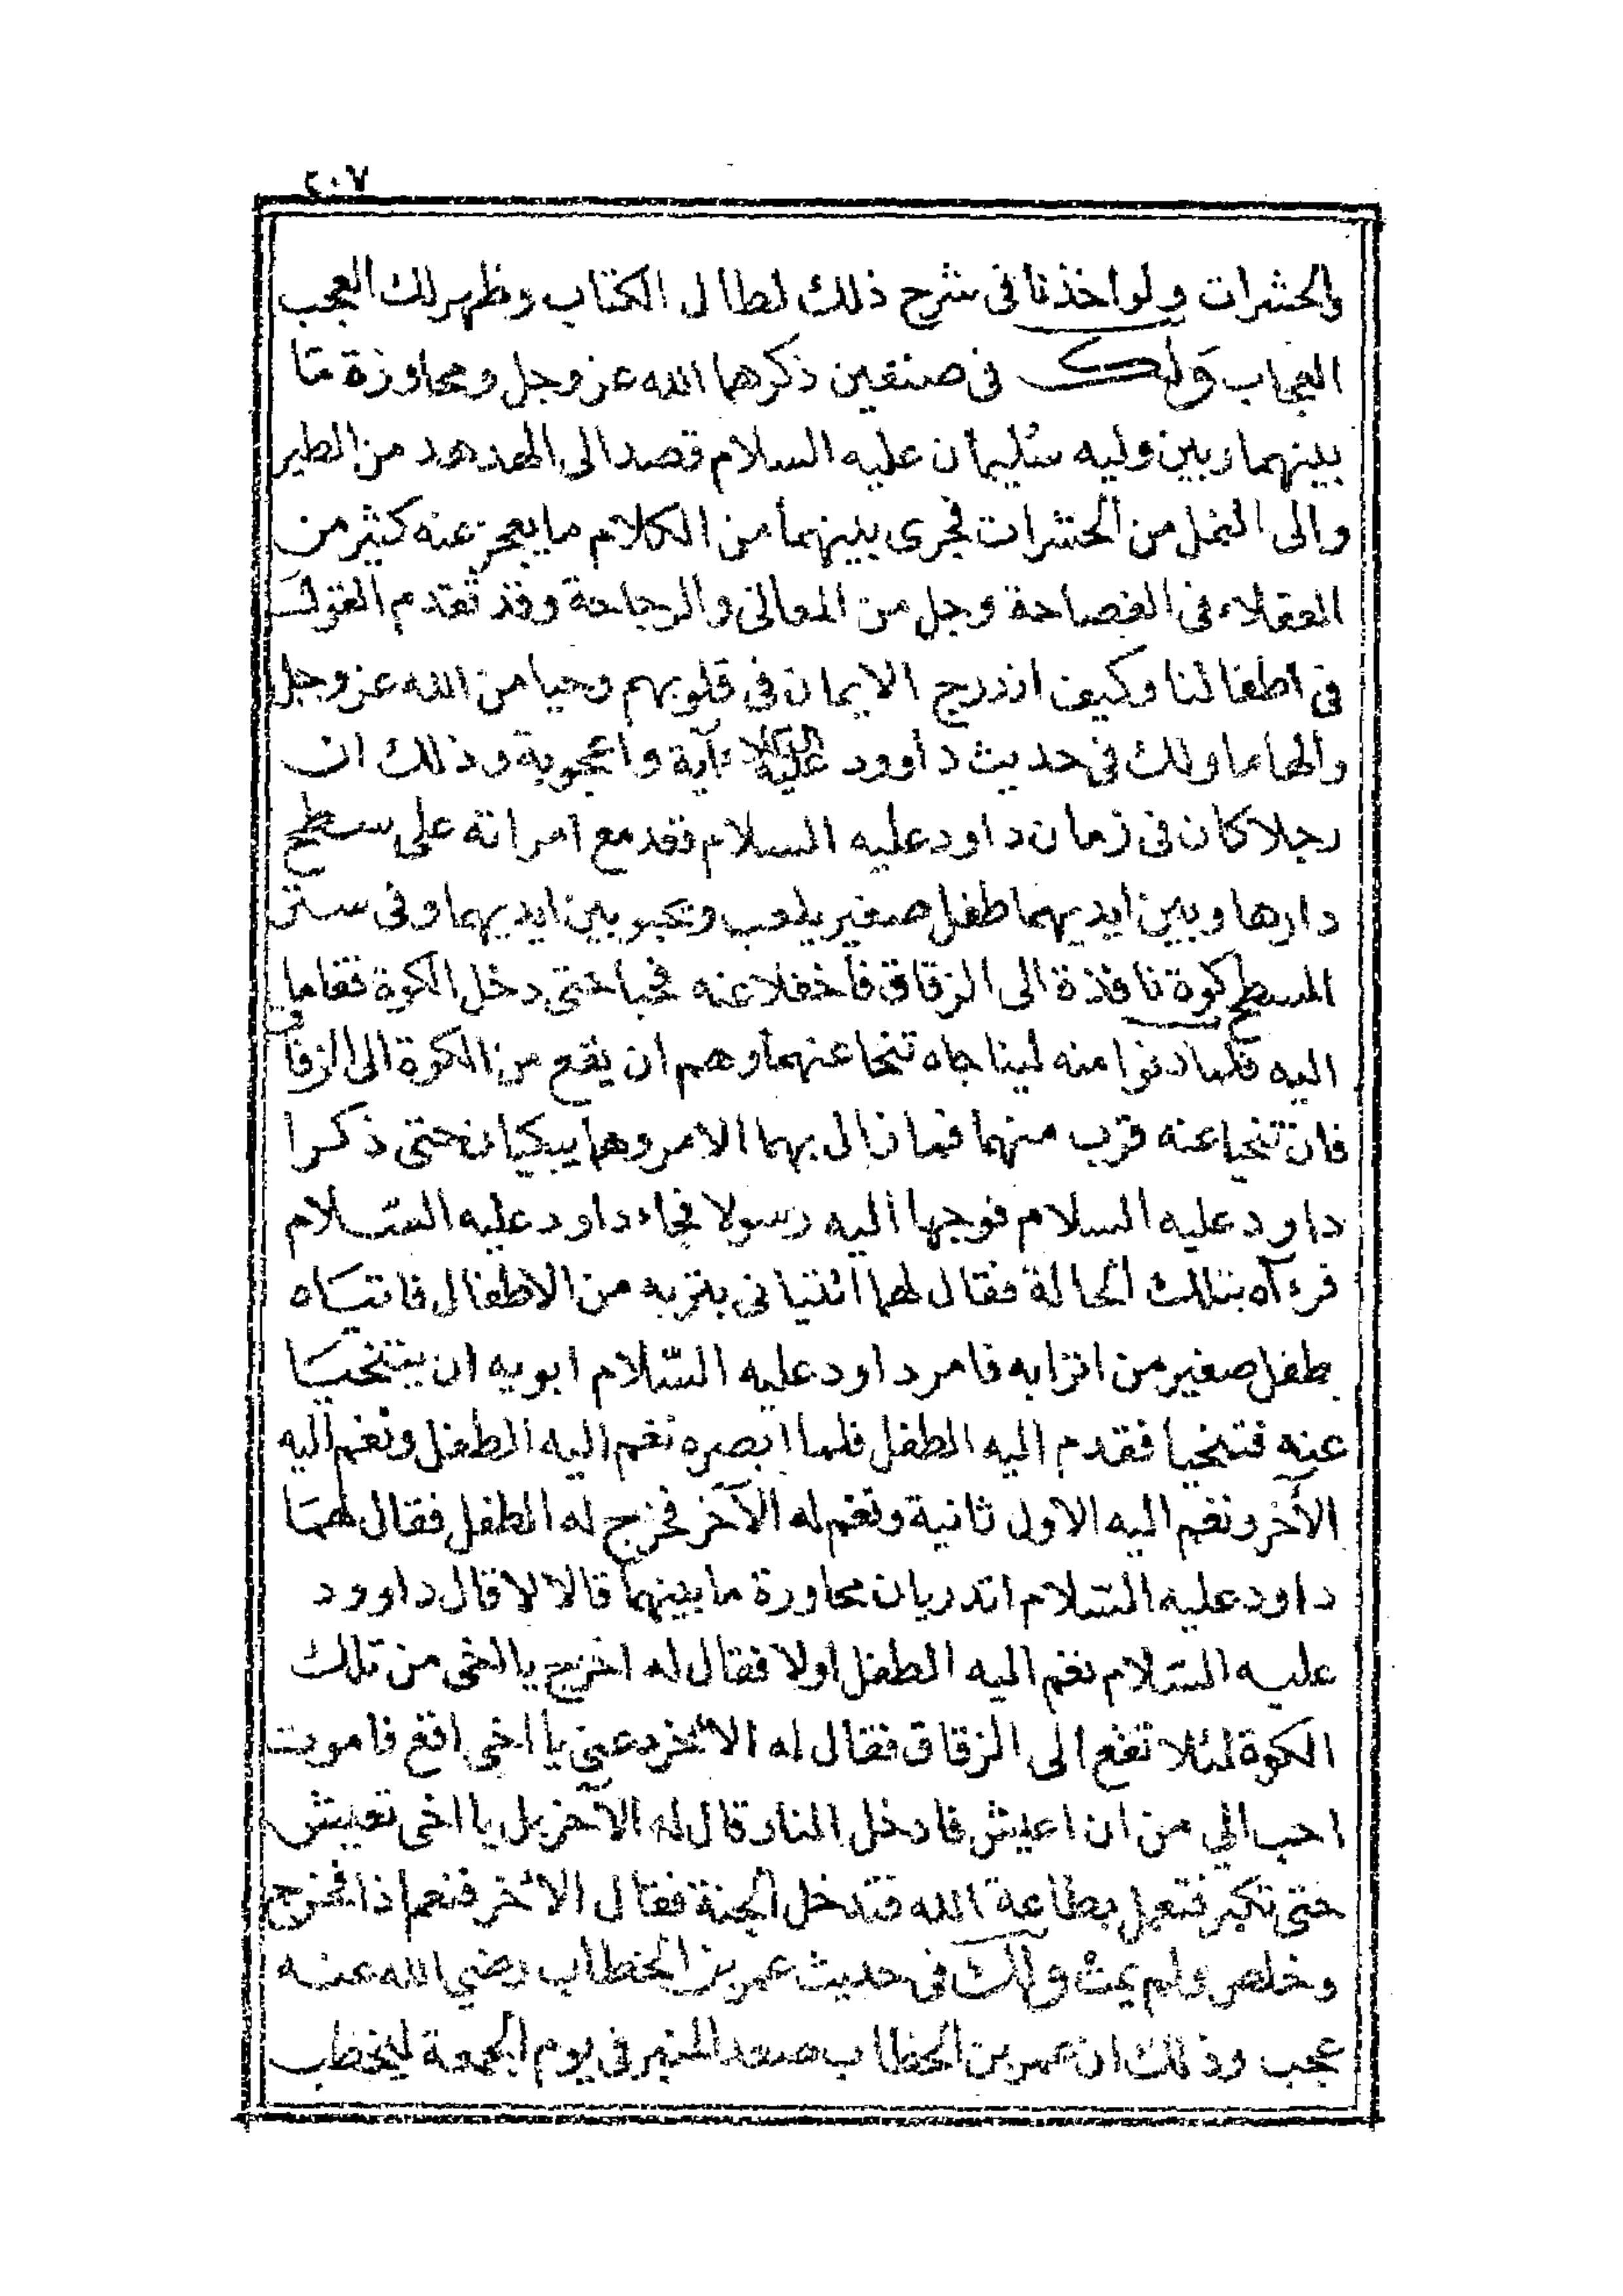 ٢٠٧
والحشرات ولو اخذنا فى شرح ذلك لطال الكتاب وظهر لك العجب
العجاب وَلك فى صنفين ذكرهما الله عز وجل ومحاورة مَا
بينهما وبين وليه سُليمان عليه السلام قصد الى الهدهد من الطير
والى النمل من الحشرات فجرى بينهما من الكلام ما يعجز عنه كثير من
العقلاء فى الفصاحة وجل من المعانى والرجاحة وقد تقدم القول
فى اطفالنا وكيف اندرج الايمان فى قلوبهم وحيا من الله عز وجل
والهاما ولك فى حديث داوود عليه السلام آية واعجوبة وذلك ان
رجلا كان فى زمان داود عليه السلام قعد مع امراته على سطح
دارها وبين ايديهما طفل صغير يلعب ويحبو بين ايديهما وفى ستر
السطح كوة نافذة الى الزقاق فأغفلا عنه فحبا حتى دخل الكوة فقاما
اليه فلما دنوا منه ليناجاه تنحا عنهما وهم ان يقع من الكوة الى الزقاق
فان تنحيا عنه قرب منهما فما زال بهما الامر وهما يبكيان حتى ذكرا
داود عليه السلام فوجها اليه رسولا فجاء داود عليه السّلام
فرءآه بتلك الحالة فقال لهما ائتيانى بتربه من الاطفال فاتيَاه
بطفل صغير من اترابه فامر داود عليه السّلام ابويه ان يتنحيَا
عنه فتنحيا فقدم اليه الطفل فلما ابصره نغم اليه الطفل ونغم اليه
الآخر ونغم اليه الاول ثانية ونغم له الآخر فخرج له الطفل فقال لهمَا
داود عليه السّلام اتدريان محاورة ما بينهما قالا لا قال داوود
عليه السّلام نغم اليه الطفل اولا فقال له اخرج يا اخى من تلك
الكوة لئلا تقع الى الزقاق فقال له الأخر دعنى يا اخى اقع فاموت
احب الي من ان اعيش فادخل النار قال له الآخر بل يا اخى تعيش
حتى تكبر فتعمل بطاعة الله فتدخل الجنة فقال الأخر فنعم اذا فخرج
وخلص ولم يمت ولك فى حديث عمر بن الخطاب رضي الله عنه
عجب وذلك ان عمر بن الخطاب صعد المنبر فى يوم الجمعة ليخطب